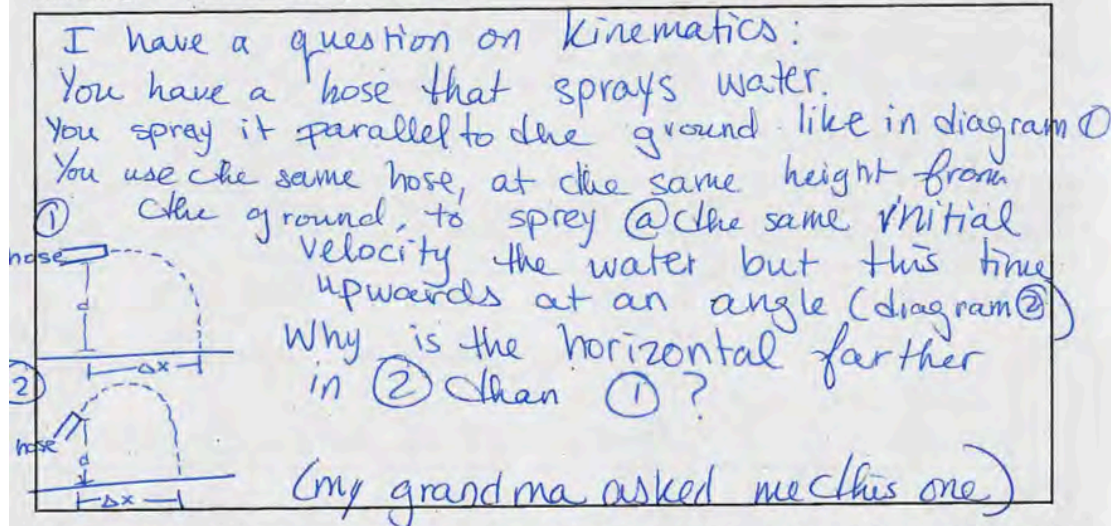 I have a question on kinematics:
You have a hose that sprays water.
You spray it parallel to the ground like in diagram ①
You use the same hose, at the same height from
① the ground, to sprey @ the same initial
hose velocity the water but this time
upwards at an angle (diagram ②)
d
Why is the horizontal farther
Δx
② in ② than ① ?
hose
d
(my grandma asked me this one)
Δx